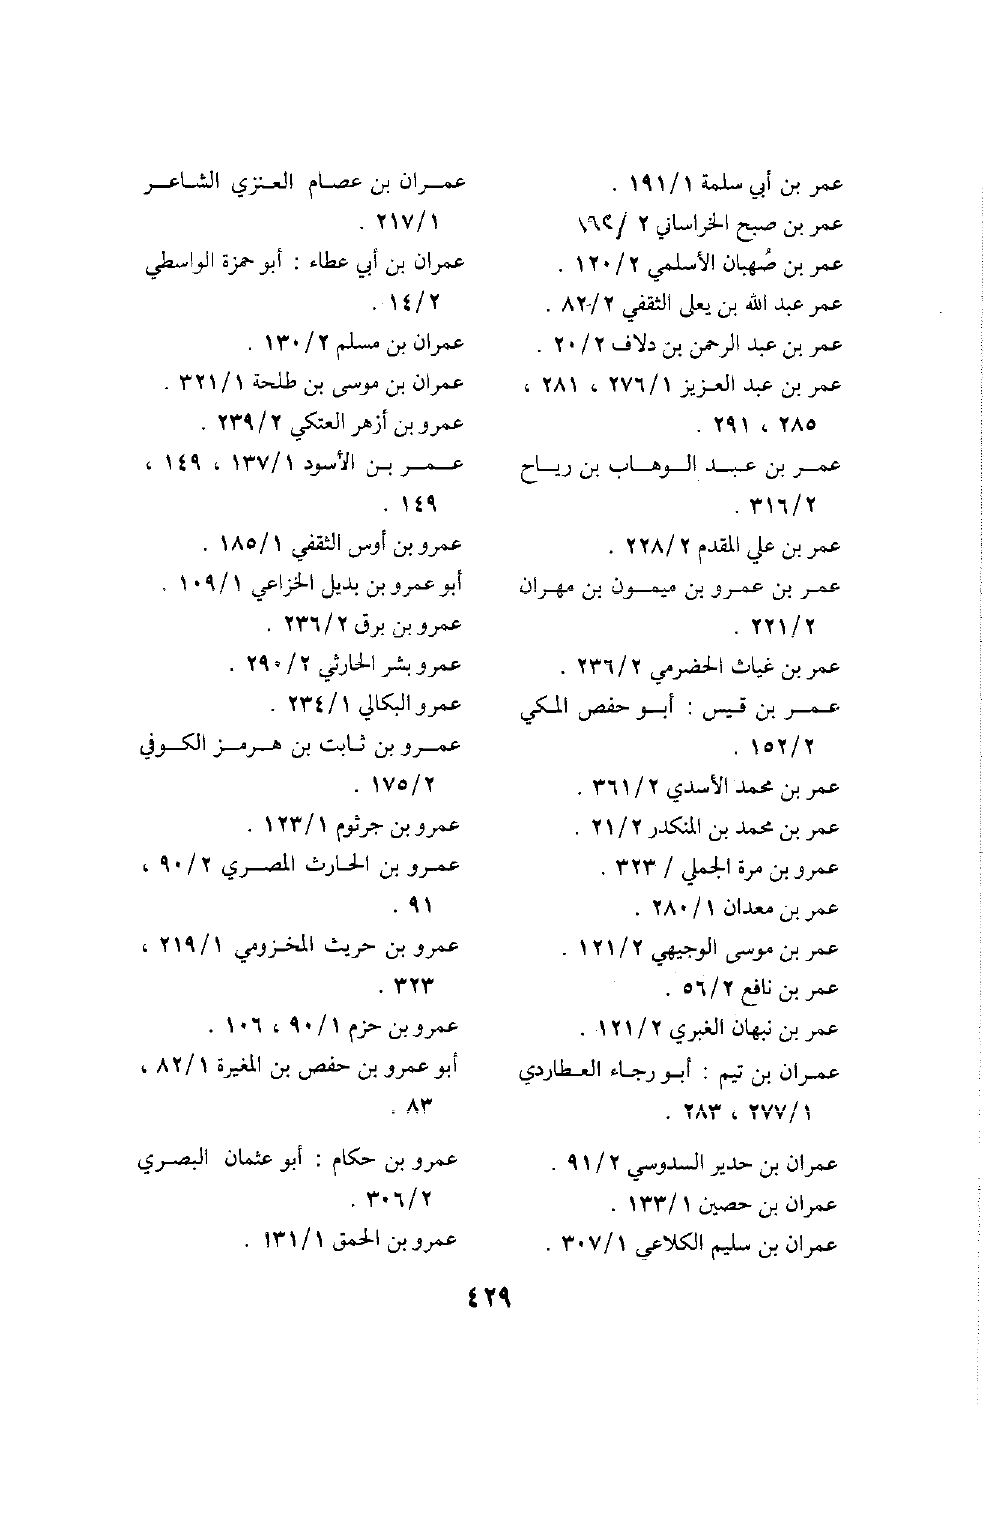 عمر بن أبي سلمة ١٩١/١ .
عمر بن صبح الخراساني ٢ /
عمر بن صُهبان الأسلمي ١٢٠/٢ .
عمر عبد الله بن يعلى الثقفي ٨٢/٢ .
عمر بن عبد الرحمن بن دلاف ٢٠/٢ .
عمر بن عبد العزيز ٢٧٦/١ ، ٢٨١ ،
٢٨٥ ، ٢٩١ .
عمر بن عبد الوهاب بن رياح
٣١٦/٢ .
عمر بن علي المقدم ٢٢٨/٢ .
عمر بن عمرو بن ميمون بن مهران
٢٢١/٢ .
عمر بن غياث الحضرمي ٢٣٦/٢ .
عمر بن قيس : أبو حفص المكي
١٥٢/٢ .
عمر بن محمد الأسدي ٣٦١/٢ .
عمر بن محمد بن المنكدر ٢١/٢ .
عمرو بن مرة الجملي / ٣٢٣ .
عمر بن معدان ٢٨٠/١ .
عمر بن موسى الوجيهي ١٢١/٢ .
عمر بن نافع ٥٦/٢ .
عمر بن نبهان الغبري ١٢١/٢ .
عمران بن تيم : أبو رجاء العطاردي
٢٧٧/١ ، ٢٨٣ .
عمران بن حدير السدوسي ٩١/٢ .
عمران بن حصين ١٣٣/١ .
عمران بن سليم الكلاعي ٣٠٧/١ .
عمران بن عصام العنزي الشاعر
٢١٧/١ .
عمران بن أبي عطاء : أبو حمزة الواسطي
١٤/٢ .
عمران بن مسلم ١٣٠/٢ .
عمران بن موسى بن طلحة ٣٢١/١ .
عمرو بن أزهر العتكي ٢٣٩/٢ .
عمر بن الأسود ١٣٧/١ ، ١٤٩ ،
١٤٩ .
عمرو بن أوس الثقفي ١٨٥/١ .
أبو عمرو بن بديل الخزاعي ١٠٩/١ .
عمرو بن برق ٢٣٦/٢ .
عمرو بشر الحارثي ٢٩٠/٢ .
عمرو البكالي ٢٣٤/١ .
عمرو بن ثابت بن هرمز الكوفي
١٧٥/٢ .
عمرو بن جرثوم ١٢٣/١ .
عمرو بن الحارث المصري ٩٠/٢ ،
٩١ .
عمرو بن حريث المخزومي ٢١٩/١ ،
٣٢٣ .
عمرو بن حزم ٩٠/١ ، ١٠٦ .
أبو عمرو بن حفص بن المغيرة ٨٢/١ ،
٨٣ .
عمرو بن حكام : أبو عثمان البصري
٣٠٦/٢ .
عمرو بن الحمق ١٣١/١ .
٤٢٩